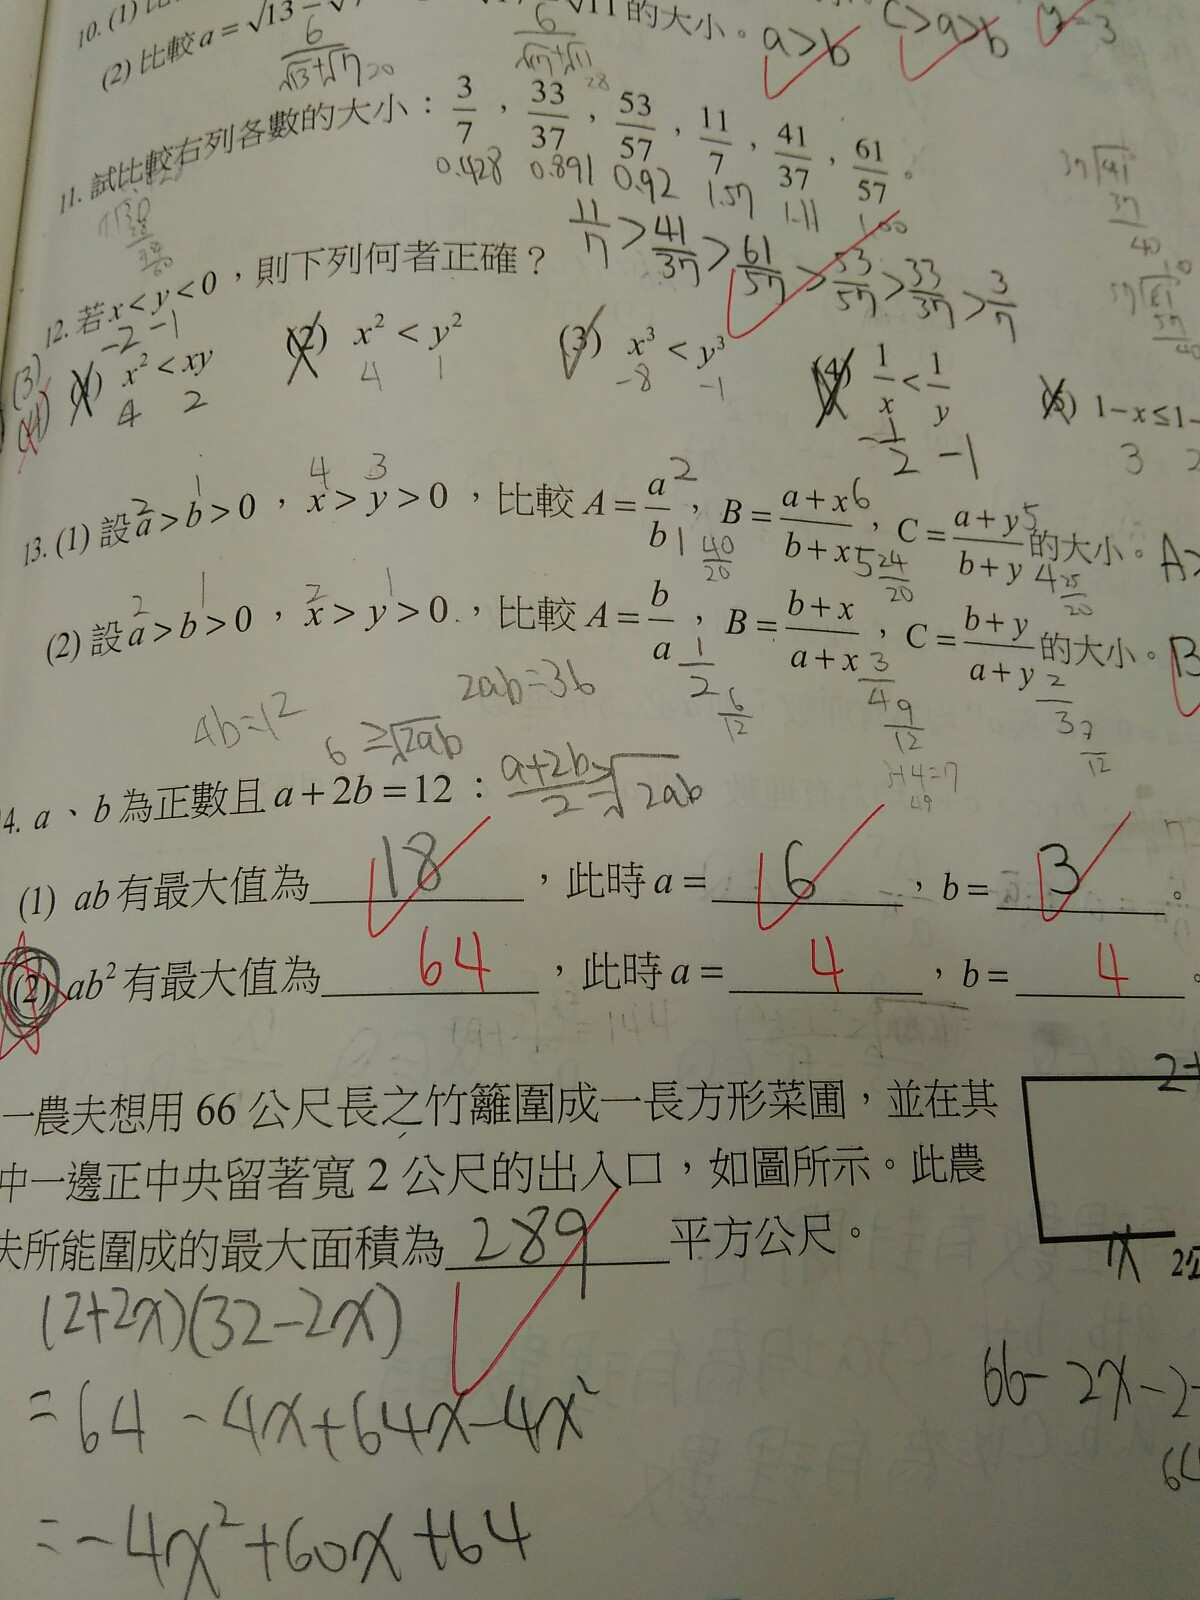 10. (1)
(2) 比較 a = √13 - √7 √11 的大小。 a>b c>a>b
6/(√13+√7) 6/(√17+√11)
11. 試比較右列各數的大小：3/7，33/37，53/57，11/7，41/37，61/57。
0.428 0.891 0.92 1.57 1.11 1.00
11/7 > 41/37 > 61/57 > 53/57 > 33/37 > 3/7
12. 若 x < y < 0，則下列何者正確？
-2 -1
(3)
(4)
(1) x² < xy (2) x² < y² (3) x³ < y³ (4) 1/x < 1/y (5) 1-x ≤ 1-
4 2 4 1 -8 -1 -1/2 -1 3 2
13. (1) 設 a > b > 0，x > y > 0，比較 A = a/b，B = (a+x)/(b+x)，C = (a+y)/(b+y) 的大小。 A>
2 1 4 3 2 1 6 5 5 4
40/20 24/20 25/20
(2) 設 a > b > 0，x > y > 0，比較 A = b/a，B = (b+x)/(a+x)，C = (b+y)/(a+y) 的大小。 B
2 1 2 1 1/2 3/4 2/3
6/12 9/12 7/12
3+4=7
49
2ab=36
6 ≥ √2ab
4. a、b 為正數且 a + 2b = 12： (a+2b)/2 ≥ √2ab
(1) ab 有最大值為 18，此時 a = 6，b = 3。
(2) ab² 有最大值為 64，此時 a = 4，b = 4。
一農夫想用 66 公尺長之竹籬圍成一長方形菜圃，並在其
中一邊正中央留著寬 2 公尺的出入口，如圖所示。此農
夫所能圍成的最大面積為 289 平方公尺。
2+
x 2公
(2+2x)(32-2x)
= 64 - 4x + 64x - 4x²
= -4x² + 60x + 64
66 - 2x - 2
64